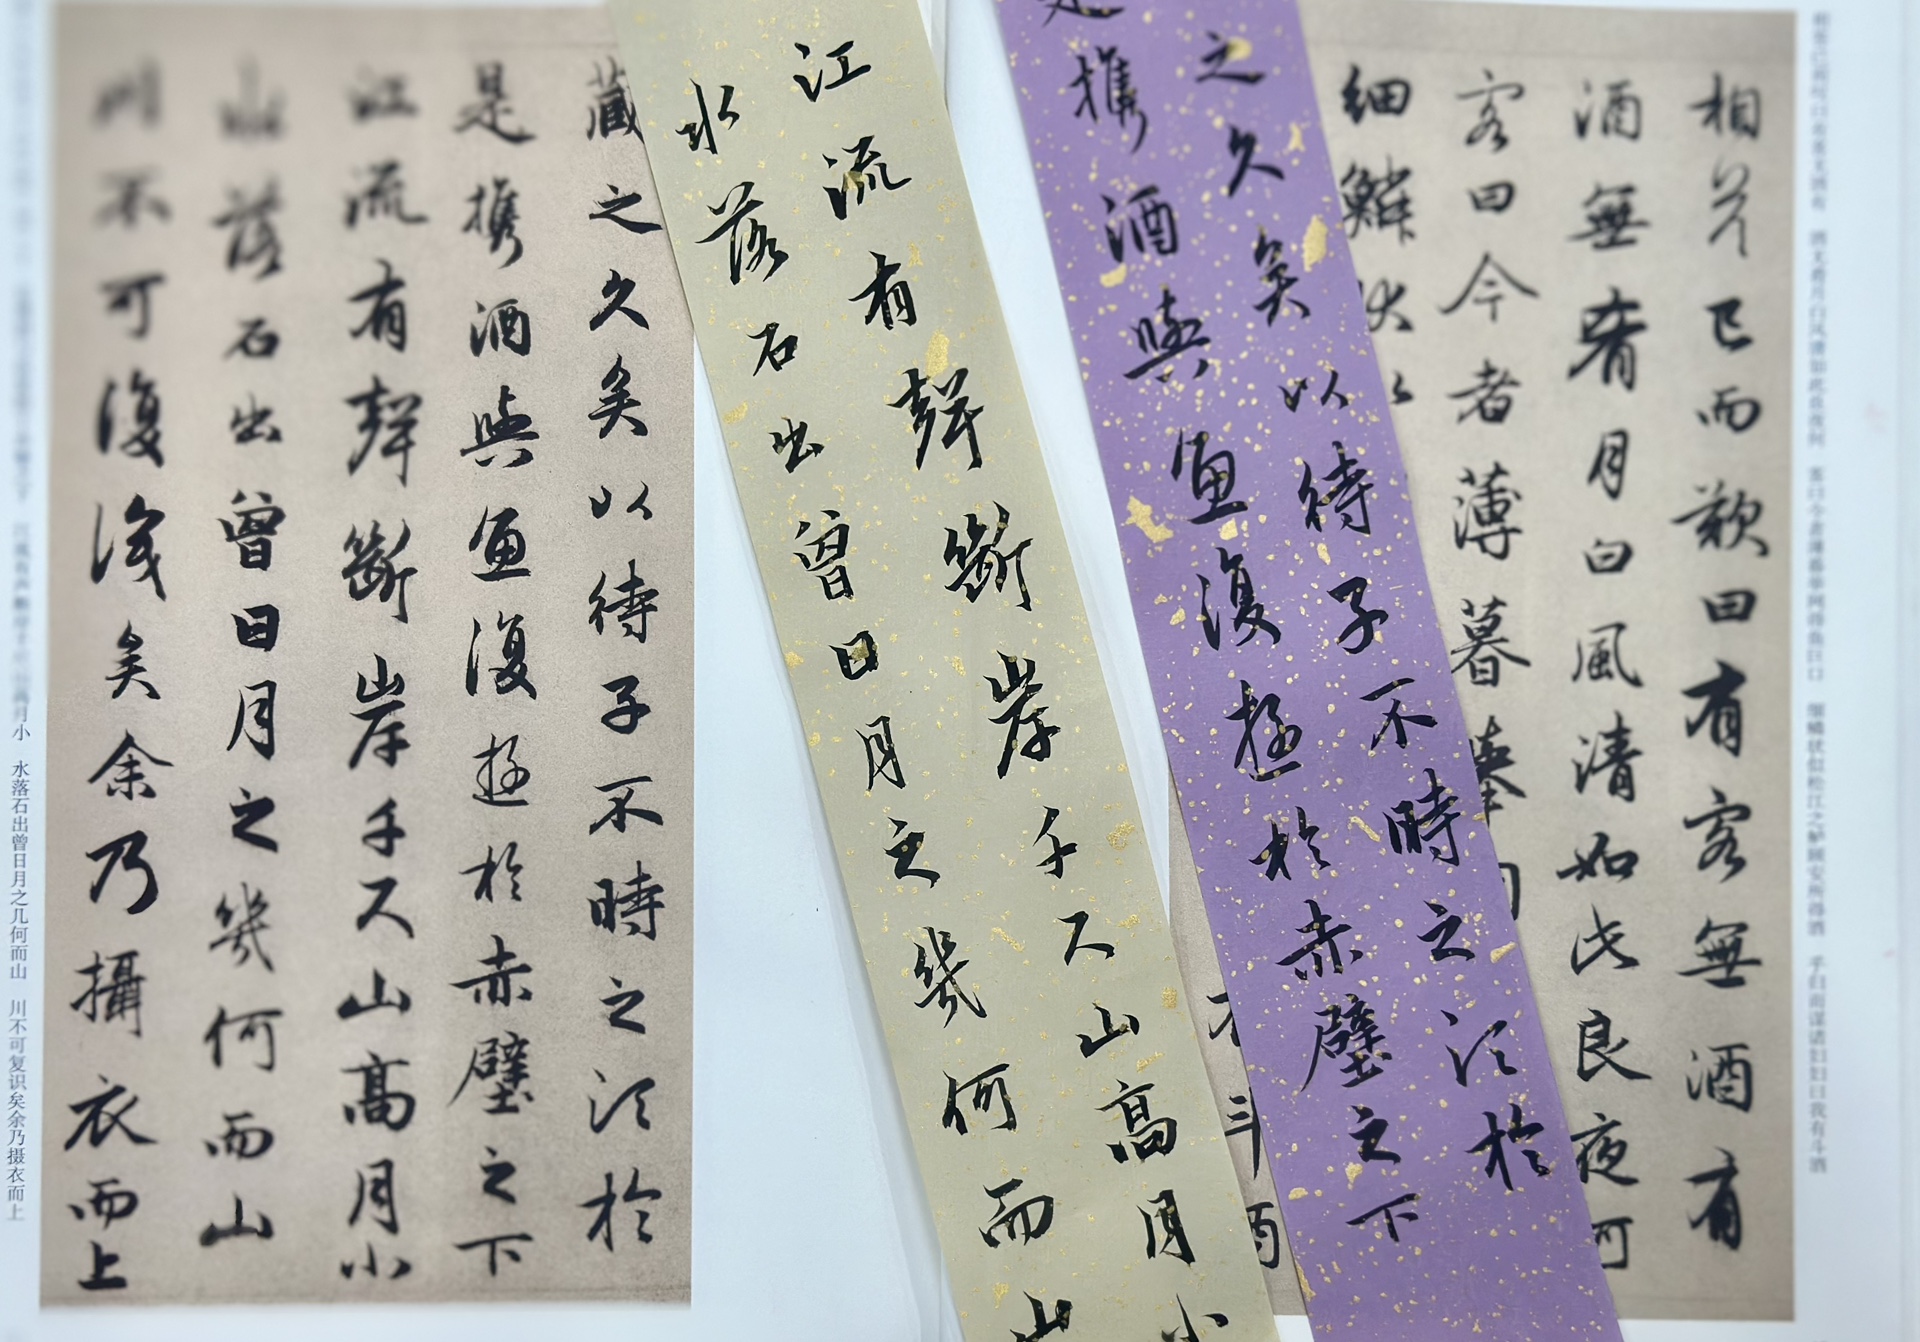 相答已而叹曰有客无酒有 酒无肴月白风清如此良夜何 客曰今者薄暮举网得鱼巨口 细鳞状似松江之鲈顾安所得酒 乎归而谋诸妇妇曰我有斗酒
相答已而歎曰有客無酒有
酒無肴月白風清如此良夜何
客曰今者薄暮舉
細鱗狀
有斗酒
之久矣以待子不時之須於
是攜酒與魚復遊於赤壁之下
江流有聲斷岸千尺山高月小
水落石出曾日月之幾何而山
藏之久矣以待子不時之須於
是攜酒與魚復遊於赤壁之下
江流有聲斷岸千尺山高月小
水落石出曾日月之幾何而山
川不可復識矣余乃攝衣而上
江流有声断岸千尺山高月小 水落石出曾日月之几何而山 川不可复识矣余乃摄衣而上